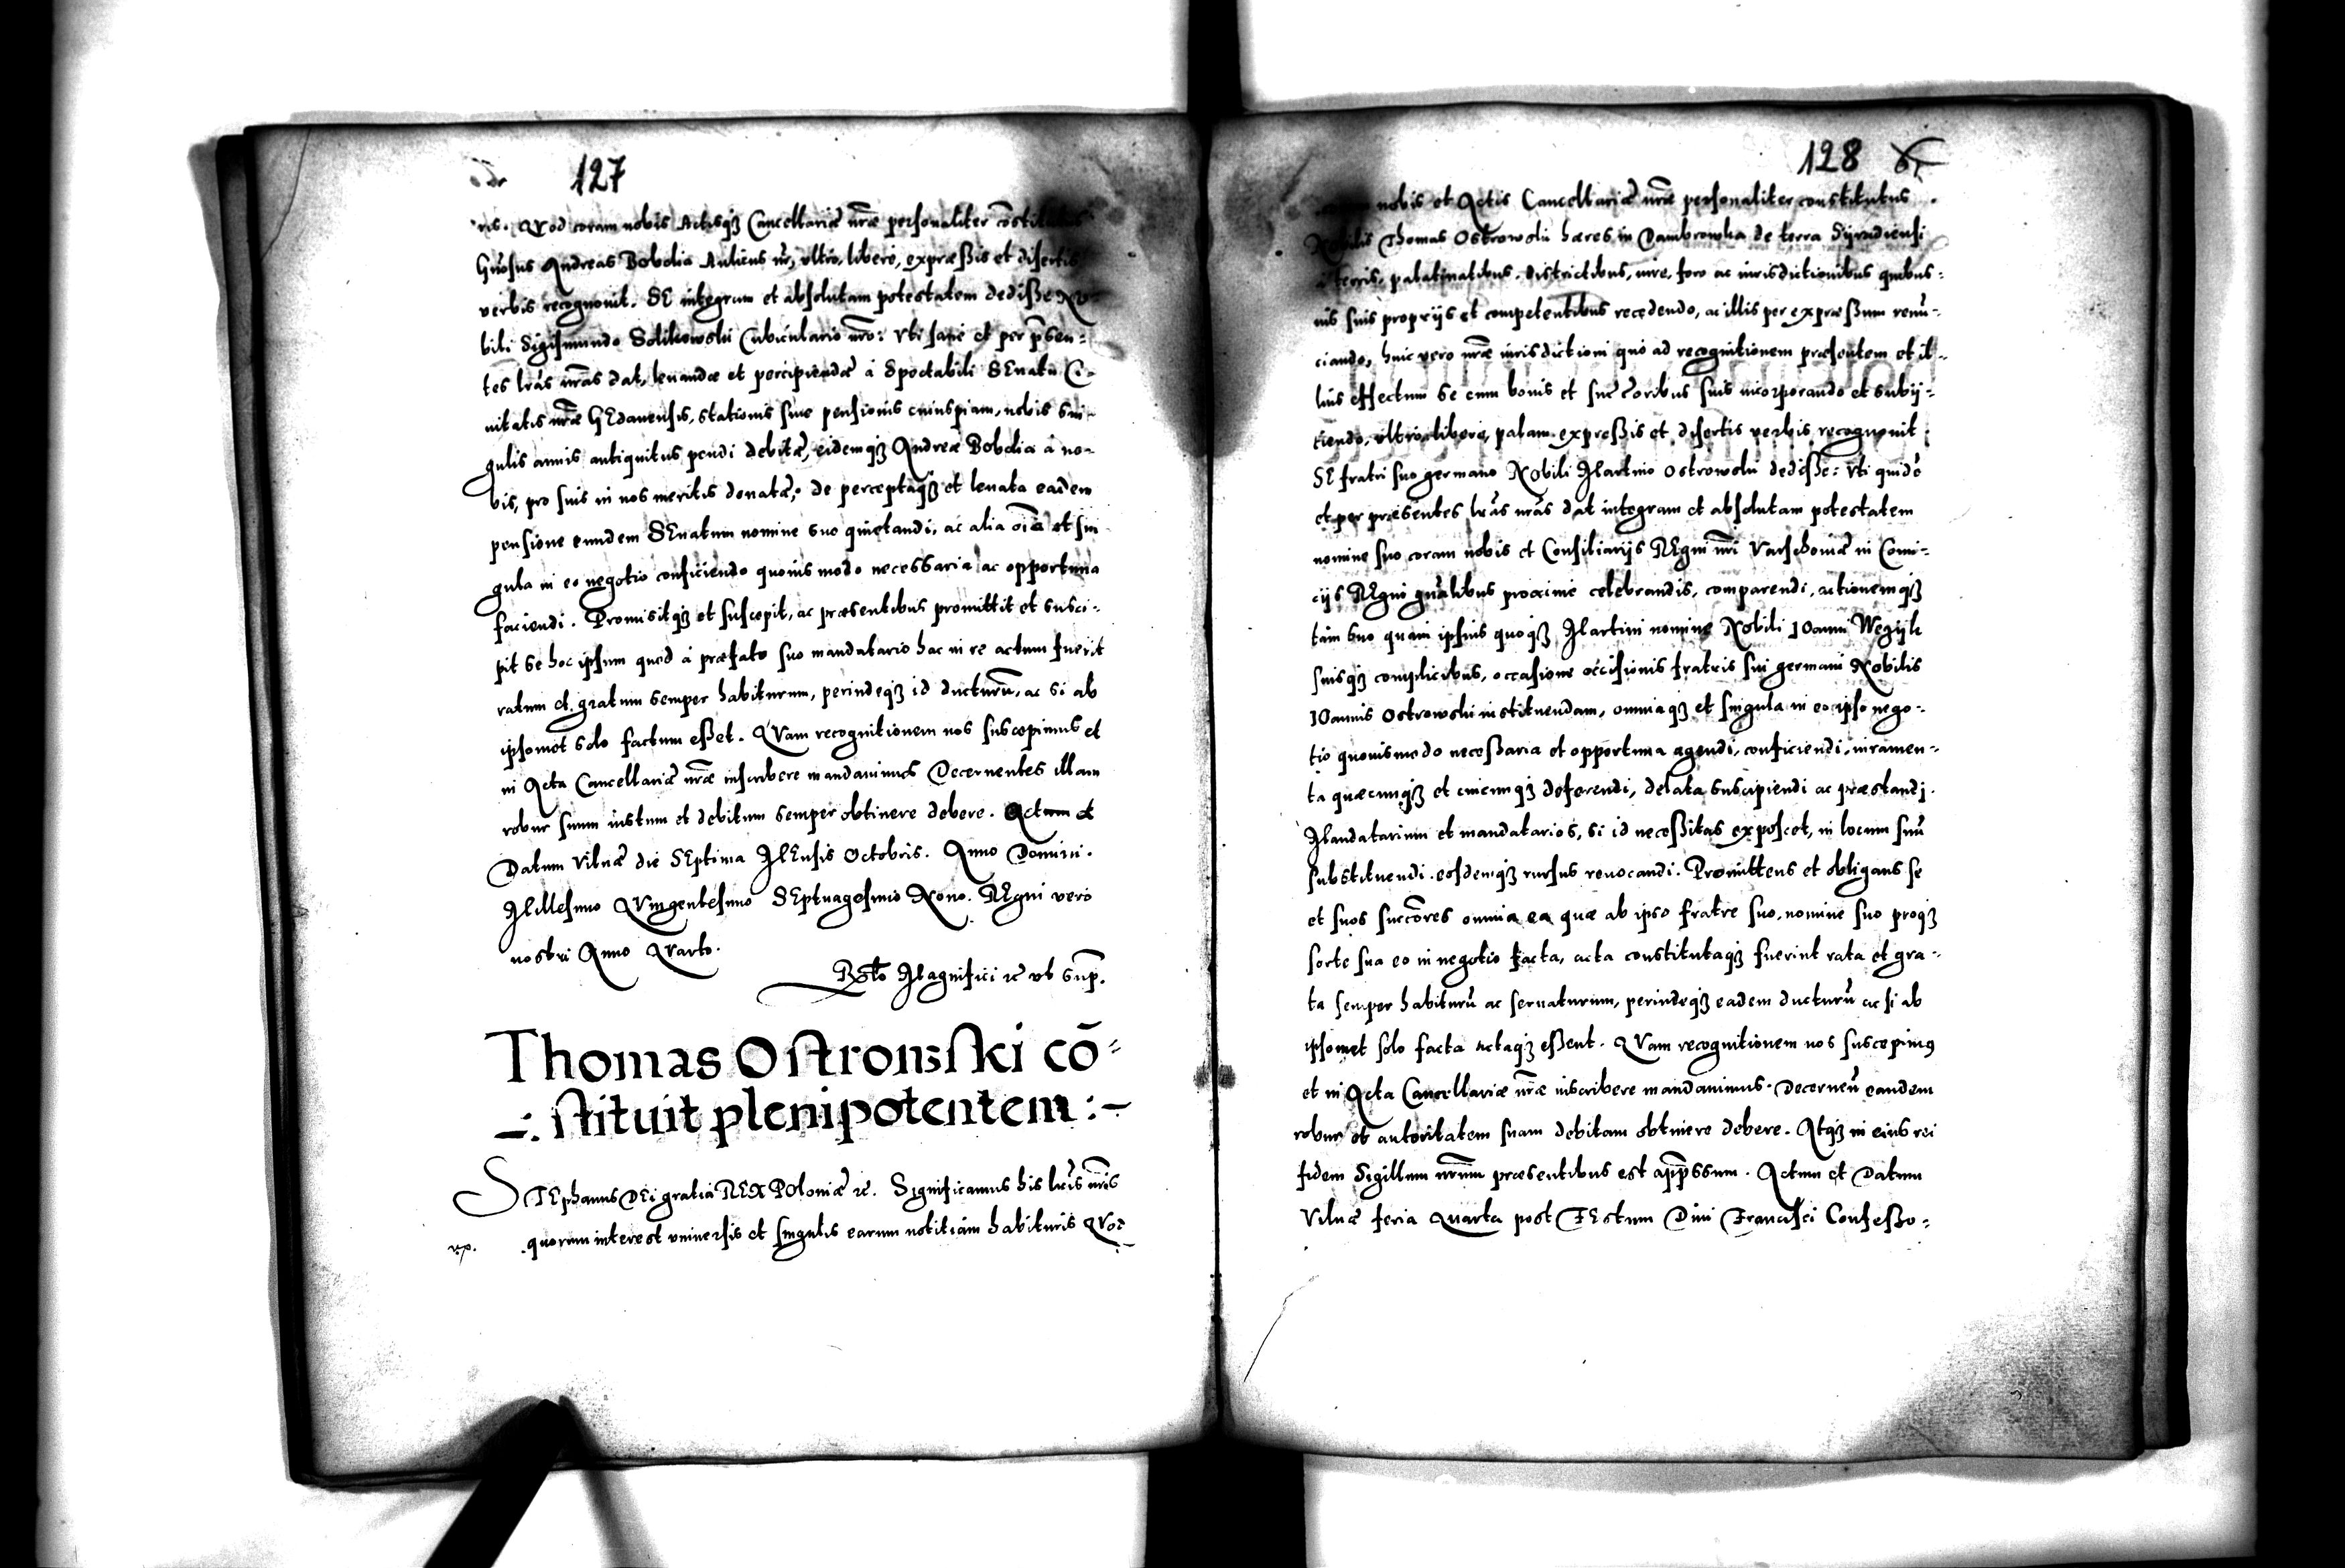 127
ris. Quod coram nobis Actisq3 Cancellariæ nr̃æ personaliter cōstitutus
Gn̄osus Andreas Bobolia Aulicus nr̄, vltro, libere, expræßis et disertis
verbis recognouit. SE integram et absolutam potestatem dediße No-
bili Sigismundo Solikowski Cubiculario nr̃o: vti sane et per p̄sen=
tes lr̃as nr̃as dat, leuandæ et percipiendæ à Spectabili SEnatu Ci-
uitatis nr̃æ GEdanensis, stationis siue pensionis cuiuspiam, nobis sin-
gulis annis antiquitus pendi debitæ, eidemq3 Andreæ Bobolia à no-
bis, pro suis in nos meritis donatæ; de perceptaq3 et leuata eadem
pensione eundem SEnatum nomine suo quietandi, ac alia oīa et sin
gula in eo negotio conficiendo quouis modo necessaria ac opportuna
faciendi. Promisitq3 et suscepit, ac præsentibus promittit et susci-
pit se hoc ipsum quod à præfato suo mandatario hac in re actum fuerit
ratum et gratum semper habiturum, perindeq3 id ducturū, ac si ab
ipsomet solo factum eßet. Quam recognitionem nos suscepimus et
in Acta Cancellariæ nr̃æ inscribere mandauimus Decernentes illam
robur suum iustum et debitum semper obtinere debere. Actum et
Datum Vilnæ die SEptima MEnsis Octobris. Anno Domini.
Millesimo Quingentesimo SEptuagesimo Nono. REgni vero
nostri Anno Quarto.
Rl̃to Magnifici rc vt sup̄.
Thomas Ostrowski cō=
-:. stituit plenipotentem :-
STEphanus DEi gratia REX POloniæ rc. Significamus his lr̃is nr̃is
quorum interest vniuersis et singulis earum notitiam habituris Quo=
128
nobis et Actis Cancellariæ nr̃æ personaliter constitutus
Nobilis Thomas Ostrowski hæres in Dambrowka de terra Syradiensi
à terris, palatinatibus, districtibus, iure, foro ac iurisdictionibus quibus=
uis suis proprijs et competentibus recedendo, ac illis per expræßum renū-
ciando, huic vero nr̃æ iurisdictioni quo ad recognitionem præsentem et il-
lius effectum se cum bonis et succ̃oribus suis incorporando et subij=
ciendo, vltro, libere, palam expreßis et disertis verbis recognouit
SE fratri suo germano Nobili Martino Ostrowski dediße: vti quidē
et per præsentes lr̃as nr̃as dat integram et absolutam potestatem
nomine suo coram nobis et Consiliarijs REgni nr̃i Varschouiæ in Comi=
cijs REgni gn̄alibus proxime celebrandis, comparendi, actionemq3
tam suo quam ipsius quoq3 Martini nomine Nobili IOanni Wężyk
suisq3 complicibus, occasione occisionis fratris sui germani Nobilis
IOannis Ostrowski instituendam, omniaq3 et singula in eo ipso nego-
tio quouismodo neceßaria et opportuna agendi, conficiendi, iuramen-
ta quæcunq3 et cuicunq3 deferendi, delata suscipiendi ac præstandj.
Mandatarium et mandatarios, si id neceßitas exposcet, in locum suū
substituendi. eosdemq3 rursus reuocandi. Promittens et obligans se
et suos succc̄ores omnia ea quæ ab ipso fratre suo, nomine suo proq3
sorte sua eo in negotio facta, acta constitutaq3 fuerint rata et gra-
ta semper habiturū ac seruaturum, perindeq3 eadem ducturū ac si ab
ipsomet solo facta actaq3 eßent. Quam recognitionem nos suscepimus
et in Acta Cancellariæ nr̃æ inscribere mandauimus. Decerneñ eandem
robur et autoritatem suam debitam obtinere debere. Atq3 in eius rei
fidem Sigillum nr̃um præsentibus est app̄ssum. Actum et Datum
Vilnæ feria Quarta post FEstum Diui Francisci Confeßo=